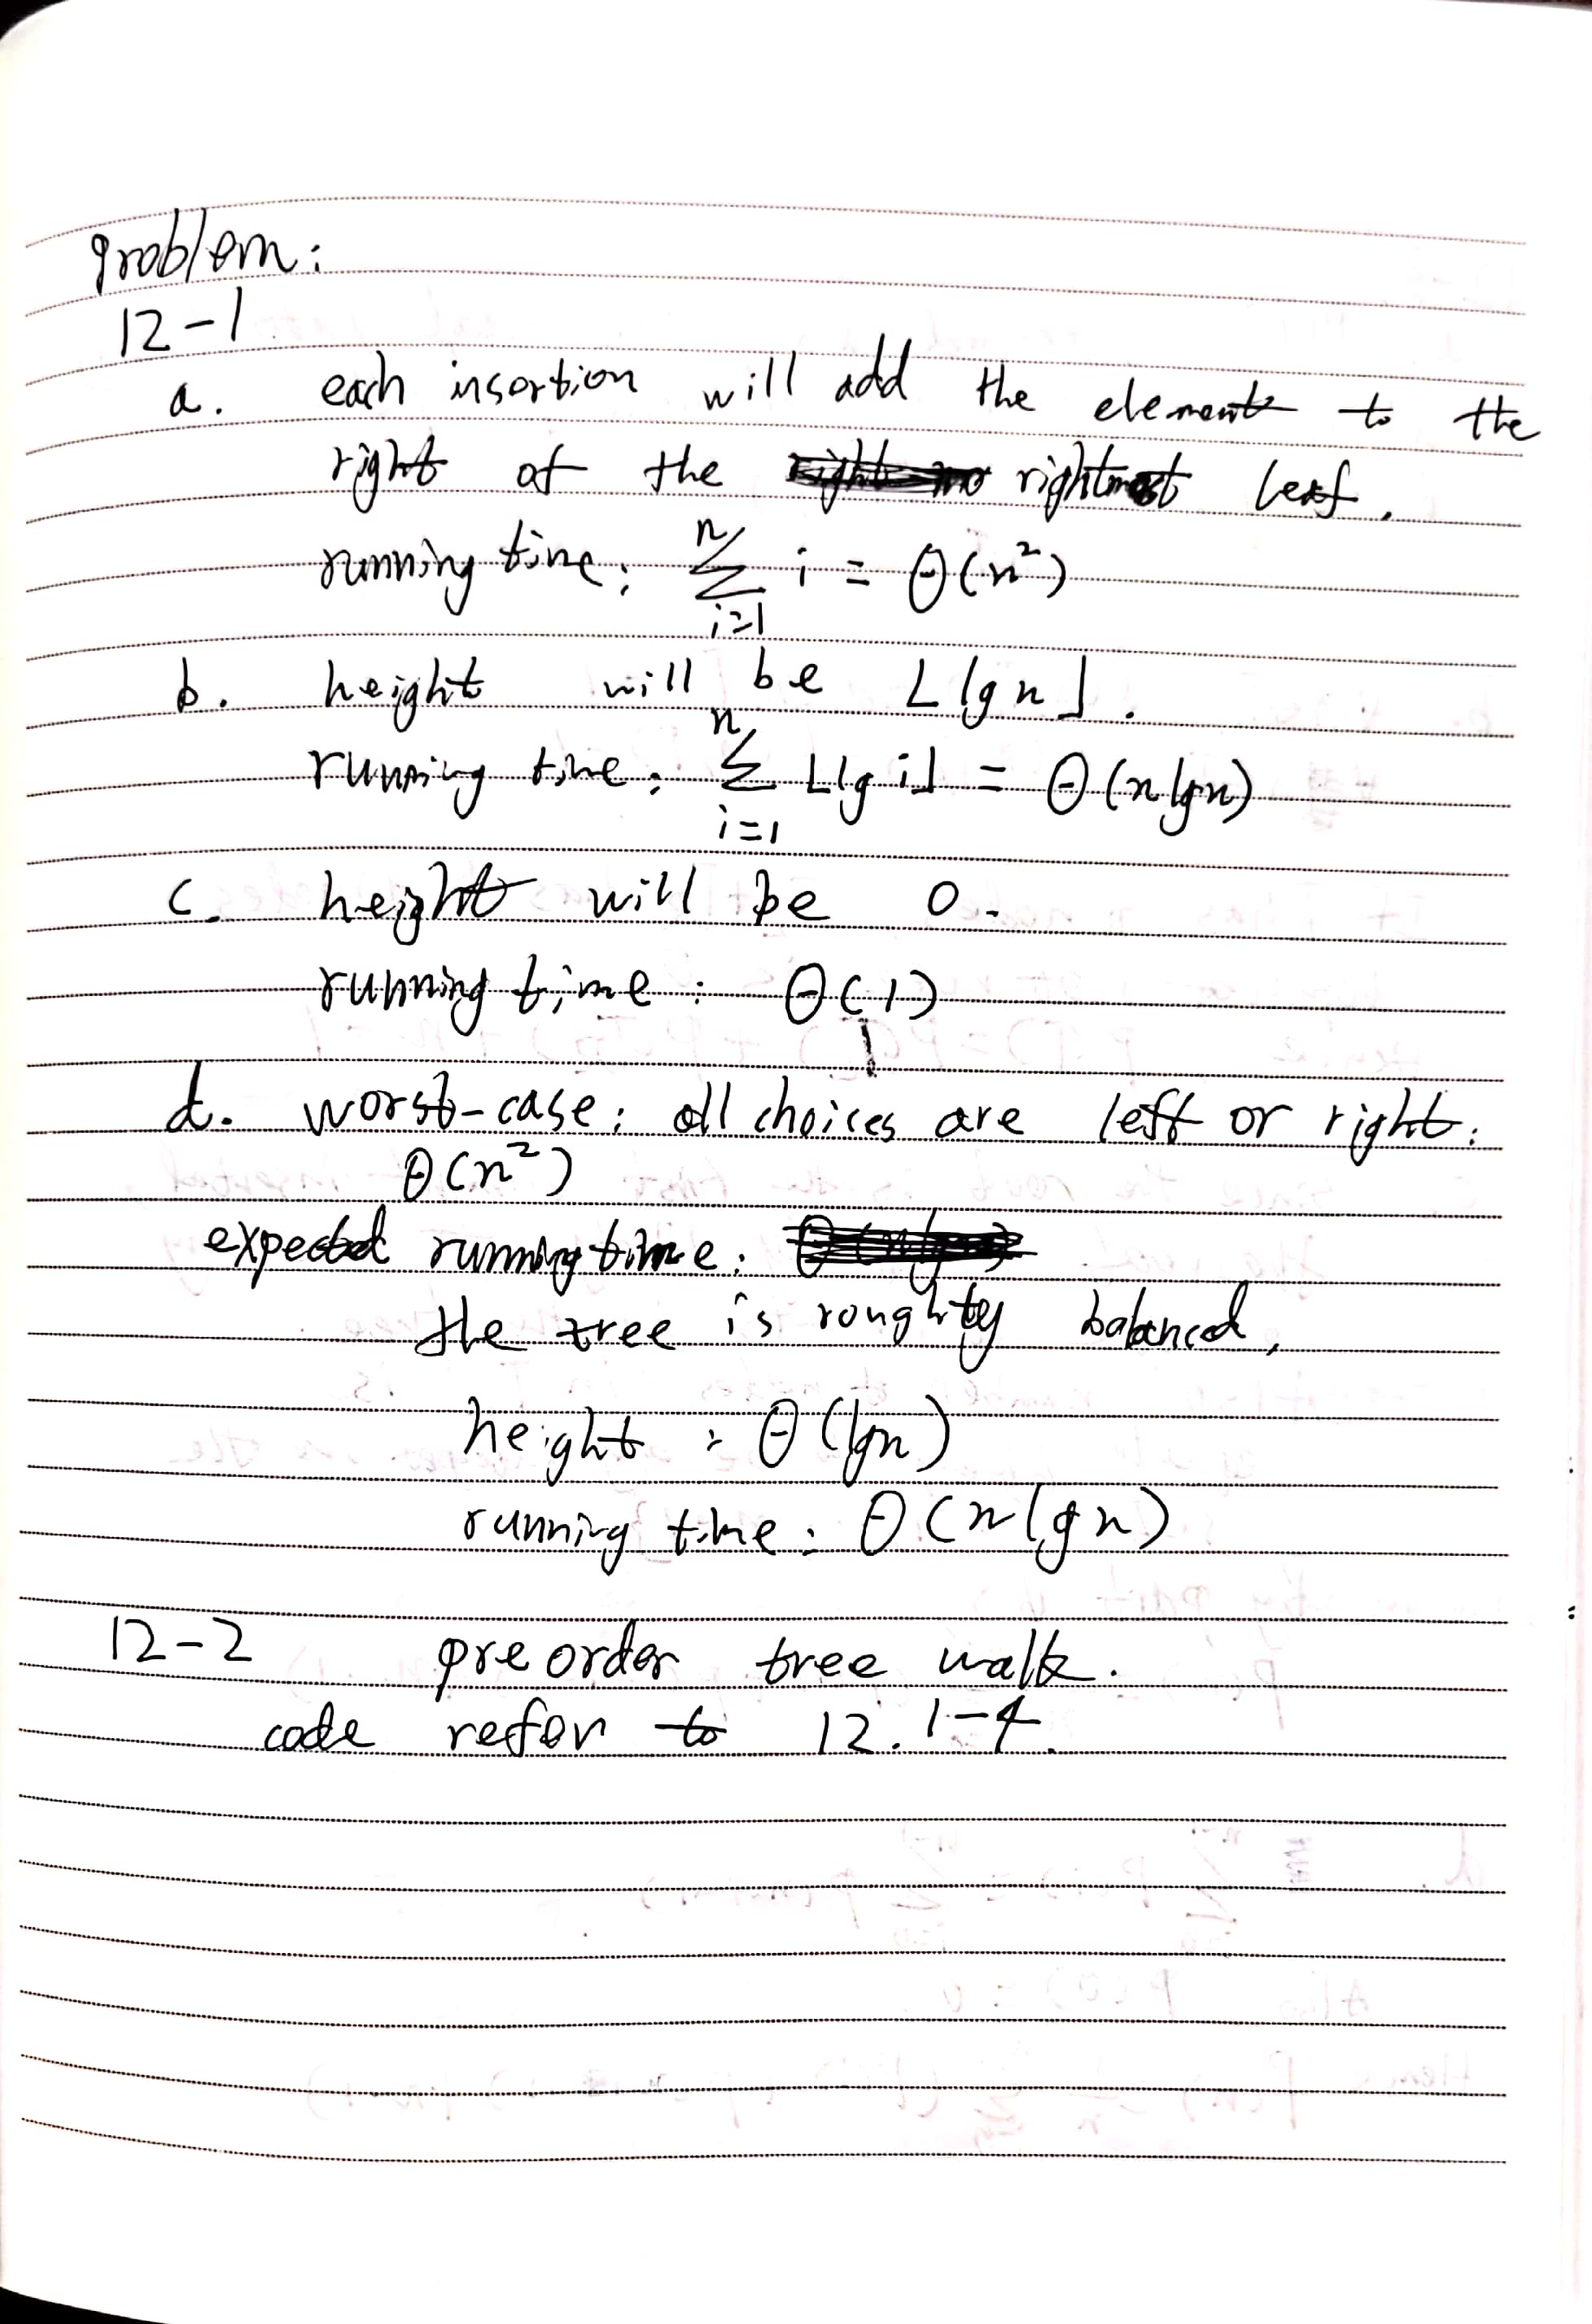 problem:
12-1
a. each insertion will add the element to the
right of the rightmost leaf.
running time: n∑i=1 i = Θ(n²)
b. height will be ⌊lg n⌋.
running time: n∑i=1 ⌊lg i⌋ = Θ(n lg n)
c. height will be 0.
running time: Θ(1)
d. worst-case: all choices are left or right:
Θ(n²)
expected running time:
the tree is roughtly balanced,
height: Θ(lg n)
running time: Θ(n lg n)
12-2 preorder tree walk.
code refer to 12.1-4.